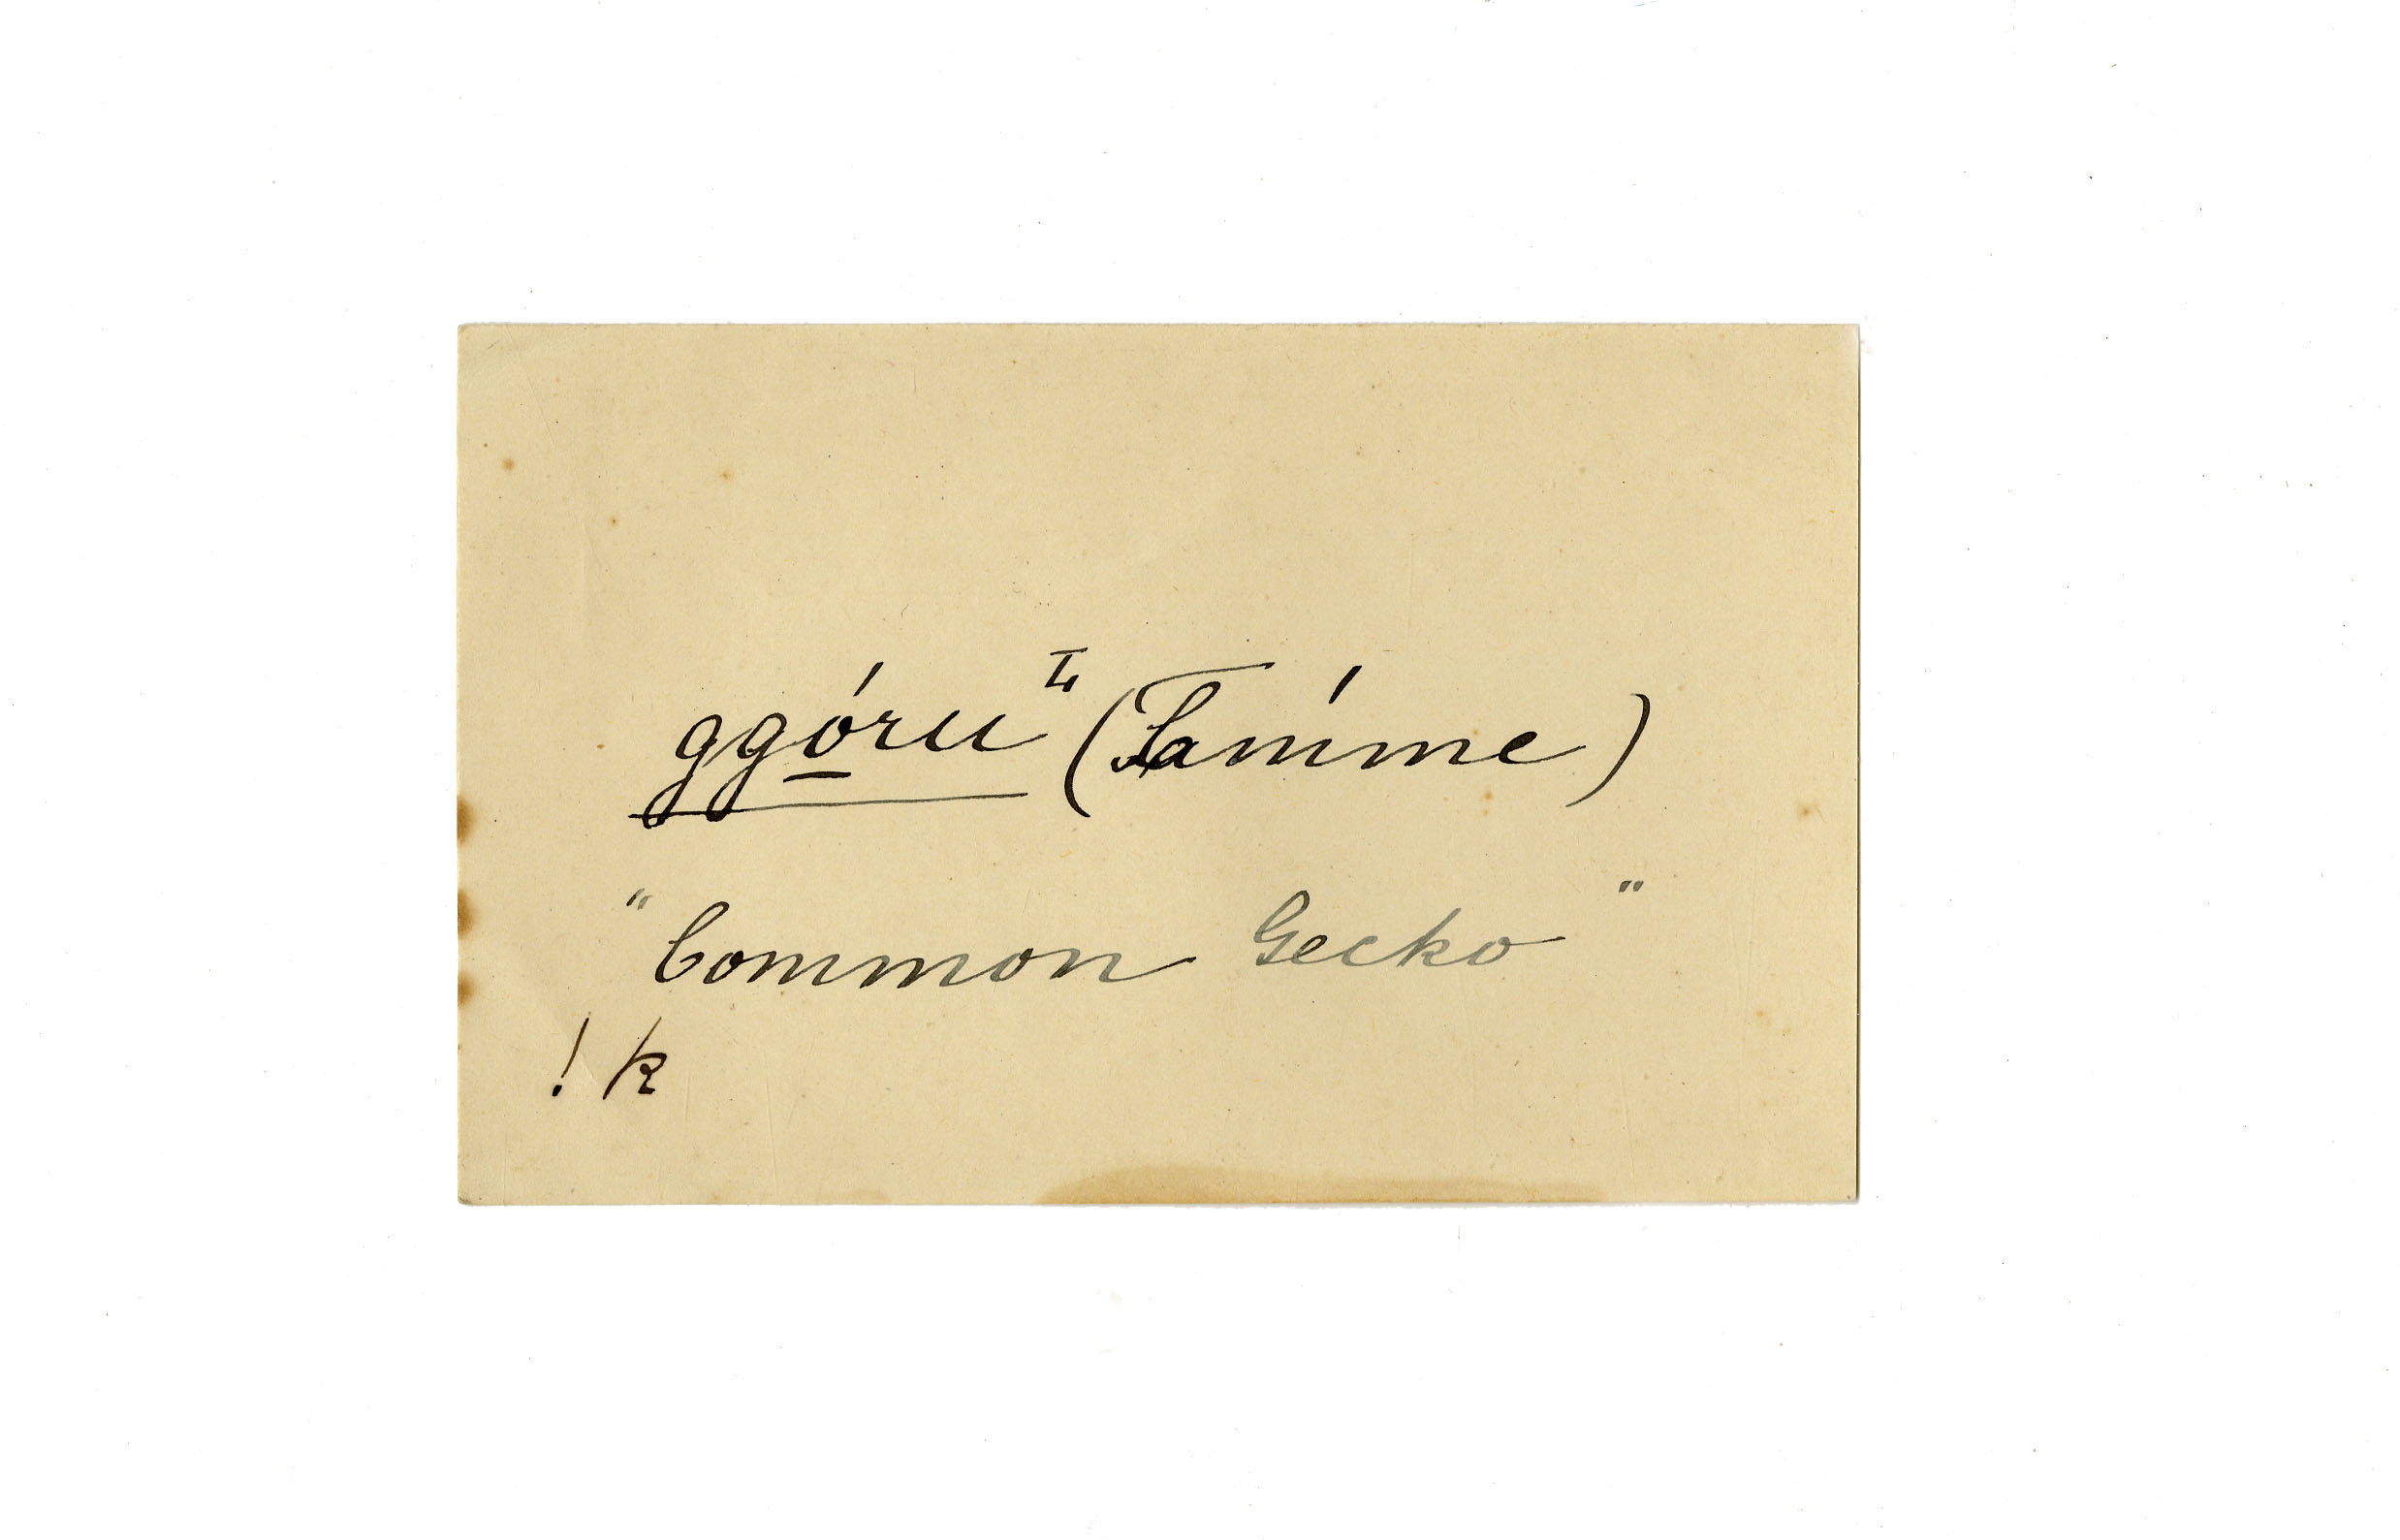 ggó̱ru I, (Tamíme)
"Common Gecko"
! k